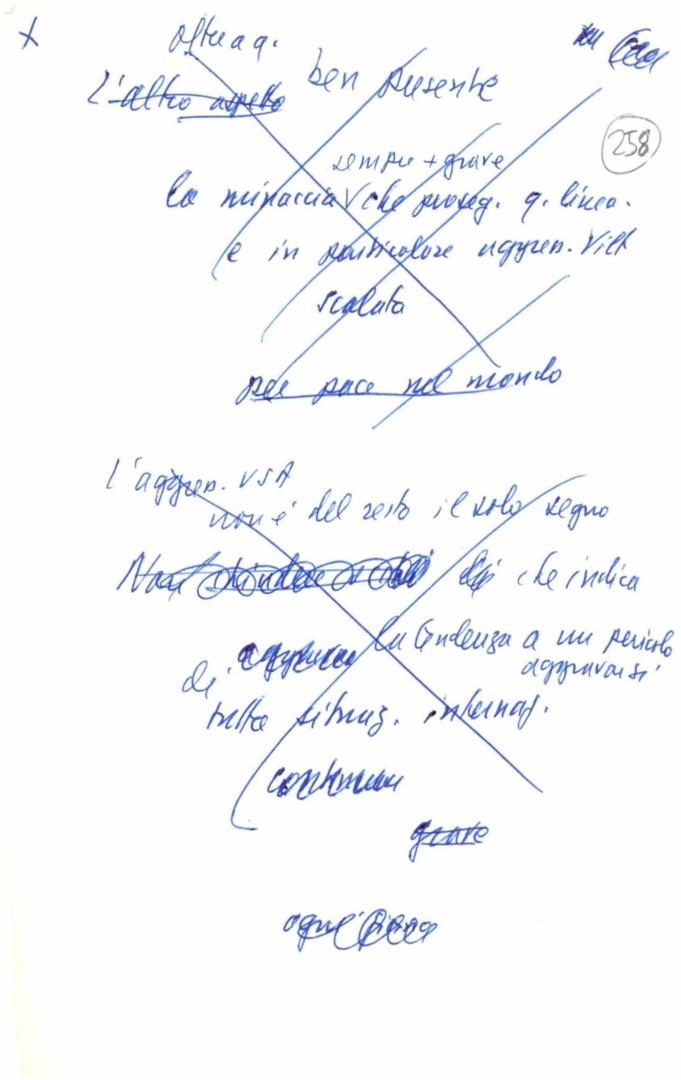 oltre a q.
L'altro aspetto ben presente
258
sempre + grave
la minaccia V che proseg. q. linea.
e in particolare aggres. Viet
scalata
per pace nel mondo
L'aggres. USA
non è del resto il solo segno
Non che indica
la tendenza a un pericolo
aggravarsi
di
tutta situaz. internaz.
grave
ogni